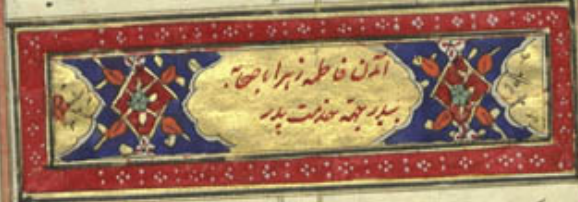 آمدن فاطمه زهرا با صحابه
بجهة خدمت پدر